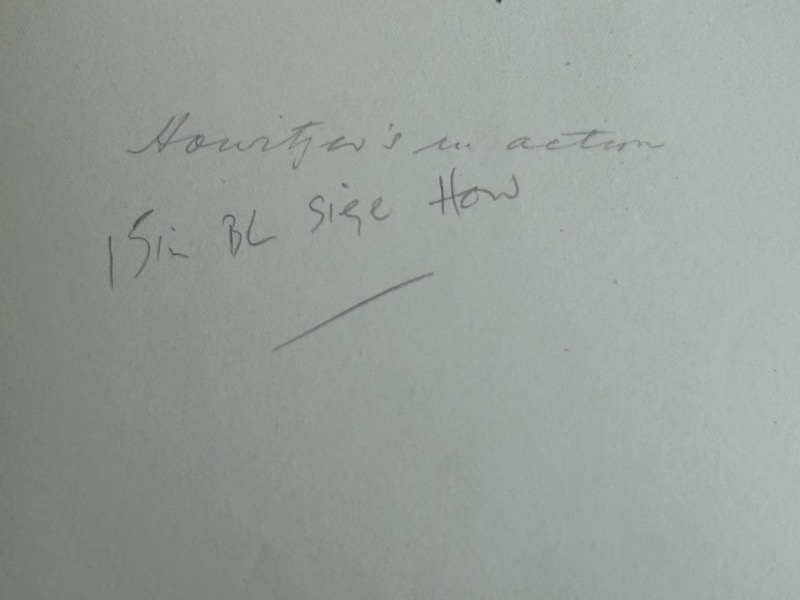 Howitzer's in action
15in BL Siege How